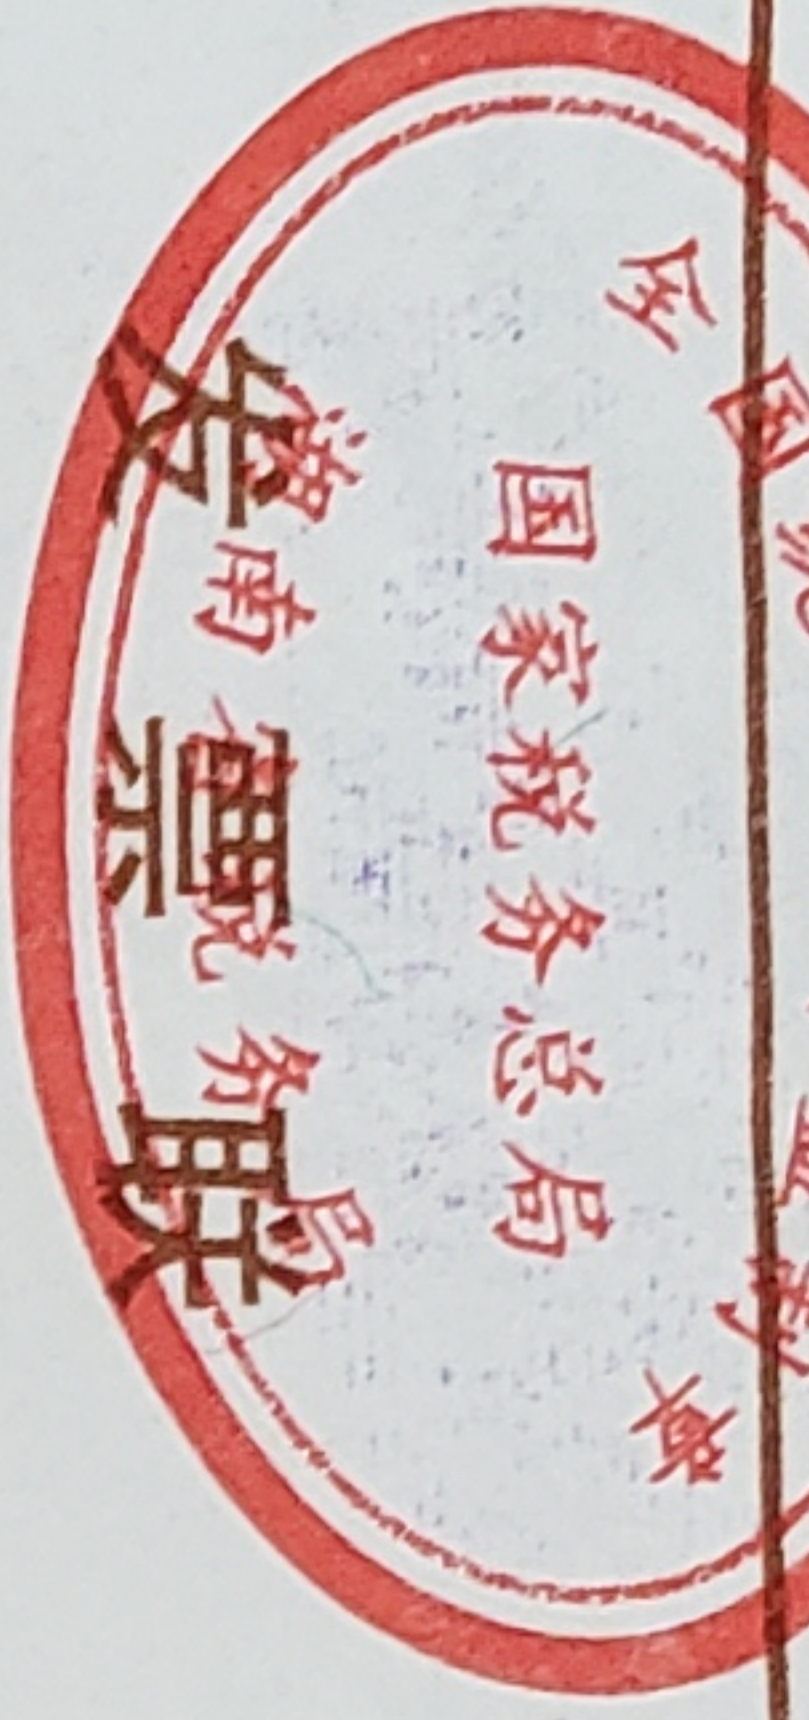 全国统一发票监制章
国家税务总局
湖南省税务局
发票联